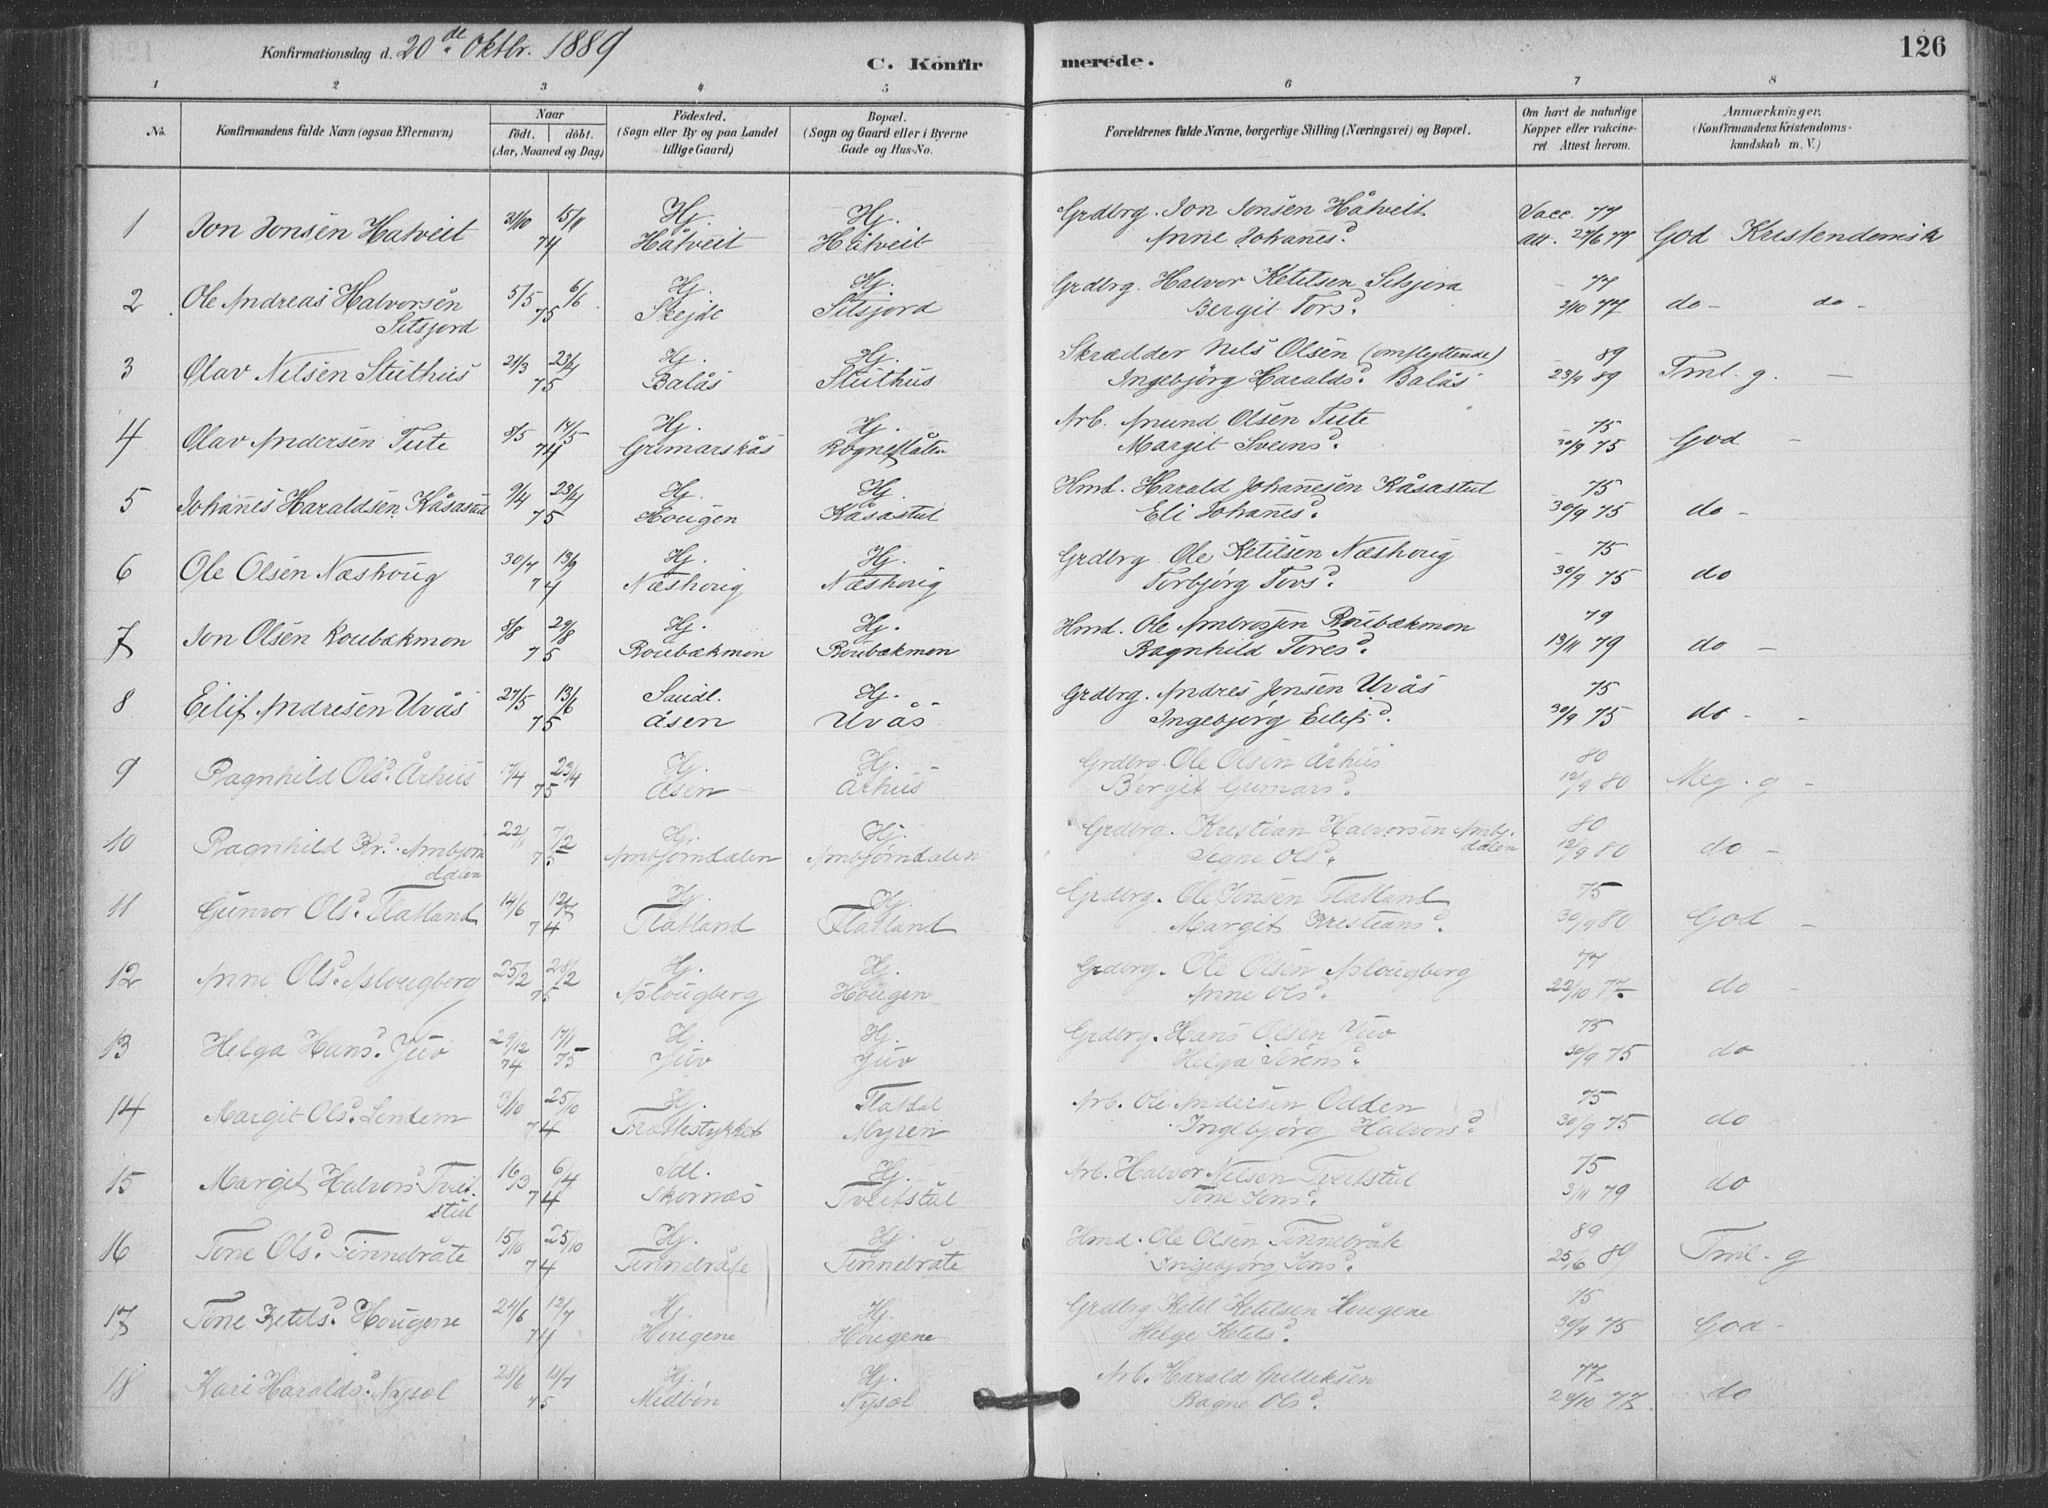 Konfirmationsdag d. 20de Oktbr. 1889
C. Konfirmerede.
126
1 2 3 4 5 6 7 8
No. Konfirmandens fulde Navn (ogsaa Efternavn) Naar født. døbt. (Aar, Maaned og Dag) Fødested. (Sogn eller By og paa Landet tillige Gaard) Bopæl. (Sogn og Gaard eller i Byerne Gade og Hus-No. Forældrenes fulde Navne, borgerlige Stilling (Næringsvei) og Bopæl. Om havt de naturlige Kopper eller vakcineret. Attest herom. Anmærkninger. (Konfirmandens Kristendomskundskab m. V.)
1 Jon Jonsen Hatveit 31/10 15/11 74 Hj. Håtveit Hj. Håtveit Grdbrg. Jon Jonsen Håtveit Anne Johanesd. Vacc. 77 att. 27/6 77 God Kristendomsk
2 Ole Andreas Halvorsen Sitsjord 5/5 6/6 75 Hj. Skejde Hj. Sitsjord Grdbrg. Halvor Ketilsen Sitsjord Bergit Torsd. – 77 2/10 77 do – do –
3 Olav Nilsen Stuthus 21/3 23/4 75 Hj. Balås Hj. Stuthus Skrædder Nils Olsen (omflyttende) Ingebjörg Haraldsd. Balås – 89 23/9 89 Tml. g. –
4 Olav Andersen Tute 8/5 14/5 74 Hj. Grimarskås Hj. Rognestålen Arb. Amund Olsen Tute Margit Sveinsd. – 75 30/9 75 God –
5 Johannes Haraldsen Kåsastul 9/4 23/4 75 Hj. Hougen Hj. Kåsastul Hmd. Harald Johanesen Kåsastul Eli Johanesd. – 75 30/9 75 do –
6 Ole Olsen Næshoug 30/7 13/9 74 Hj. Næshoug Hj. Næshoug Grdbrg Ole Ketilsen Næshoug Torbjörg Torsd. – 75 30/9 75 do
7 Jon Olsen Roubækmon 8/8 29/8 75 Hj. Roubækmon Hj. Roubækmon Hmd. Ole Ambrosjen Roubækmon Ragnhild Toresd. 79 13/11 79 do –
8 Eilif Andresen Uvås 27/5 13/6 75 Saudl. Åsen Hj. Uvås Grdbrg. Andres Jonsen Uvås Ingebjörg Eilefsd. 75 30/9 75 do – –
9 Ragnhild Olsd. Århus 17/4 23/4 75 Hj. Åsen Hj. Århus Grdbrg. Ole Olsen Århus Bergit Gumarsd. 80 12/9 80 Meg. g –
10 Ragnhild Kr.d. Ambjörndalen 22/1 7/2 75 Hj. Ambjörndalen Hj. Ambjörndalen Grdbrg. Kristian Halvorsen Ambj.ddlen Signe Olsd. 80 12/9 80 do –
11 Gunvor Olsd. Flatland 14/6 12/7 74 Hj. Flatland Hj. Flatland Grdbrg. Ole Jonsen Flatland Margit Kristiansd. 75 30/9 80 God –
12 Anne Olsd. Aslougberg 25/2 28/2 75 Hj. Aslougberg Hj. Hougen Grdbrg. Ole Olsen Aslougberg Anne Olsd. 77 22/10 77 do –
13 Helga Hansd. Juv 29/12 74 17/1 75 Hj. Juv Hj. Juv Grdbrg. Hans Olsen Juv Helga Sörensd. 75 30/9 75 do
14 Margit Olsd. Lendem 3/10 25/10 74 Hj. Trollestykket Flatdal Myren Arb. Ole Andersen Odden Ingebjörg Halvorsd. 75 30/9 75 do
15 Margit Halvorsd. Tveitstul 16/3 6/4 74 Sdl. Skornæs Hj. Tveitstul Arb. Halvor Nilsen Tveitstul Tone Jonsd. 75 3/11 79 do
16 Tone Olsd. Finnebråte 15/10 25/10 74 Hj. Finnebråte Hj. Finnebråte Hmd. Ole Olsen Finnebråte Ingebjörg Jensd. 89 25/6 89 Tml. g
17 Tone Ketilsd. Hougene 24/6 12/7 74 Hj. Hougene Hj. Hougene Grdbrg. Ketil Ketilsen Hougene Helge Ketilsd. 75 30/9 75 God –
18 Kari Haraldsd. Nysöl 28/6 18/7 75 Hj. Midbön Hj. Nysöl Arb. Harald Gulliksen Ragne Olsd. 77 22/10 77 do